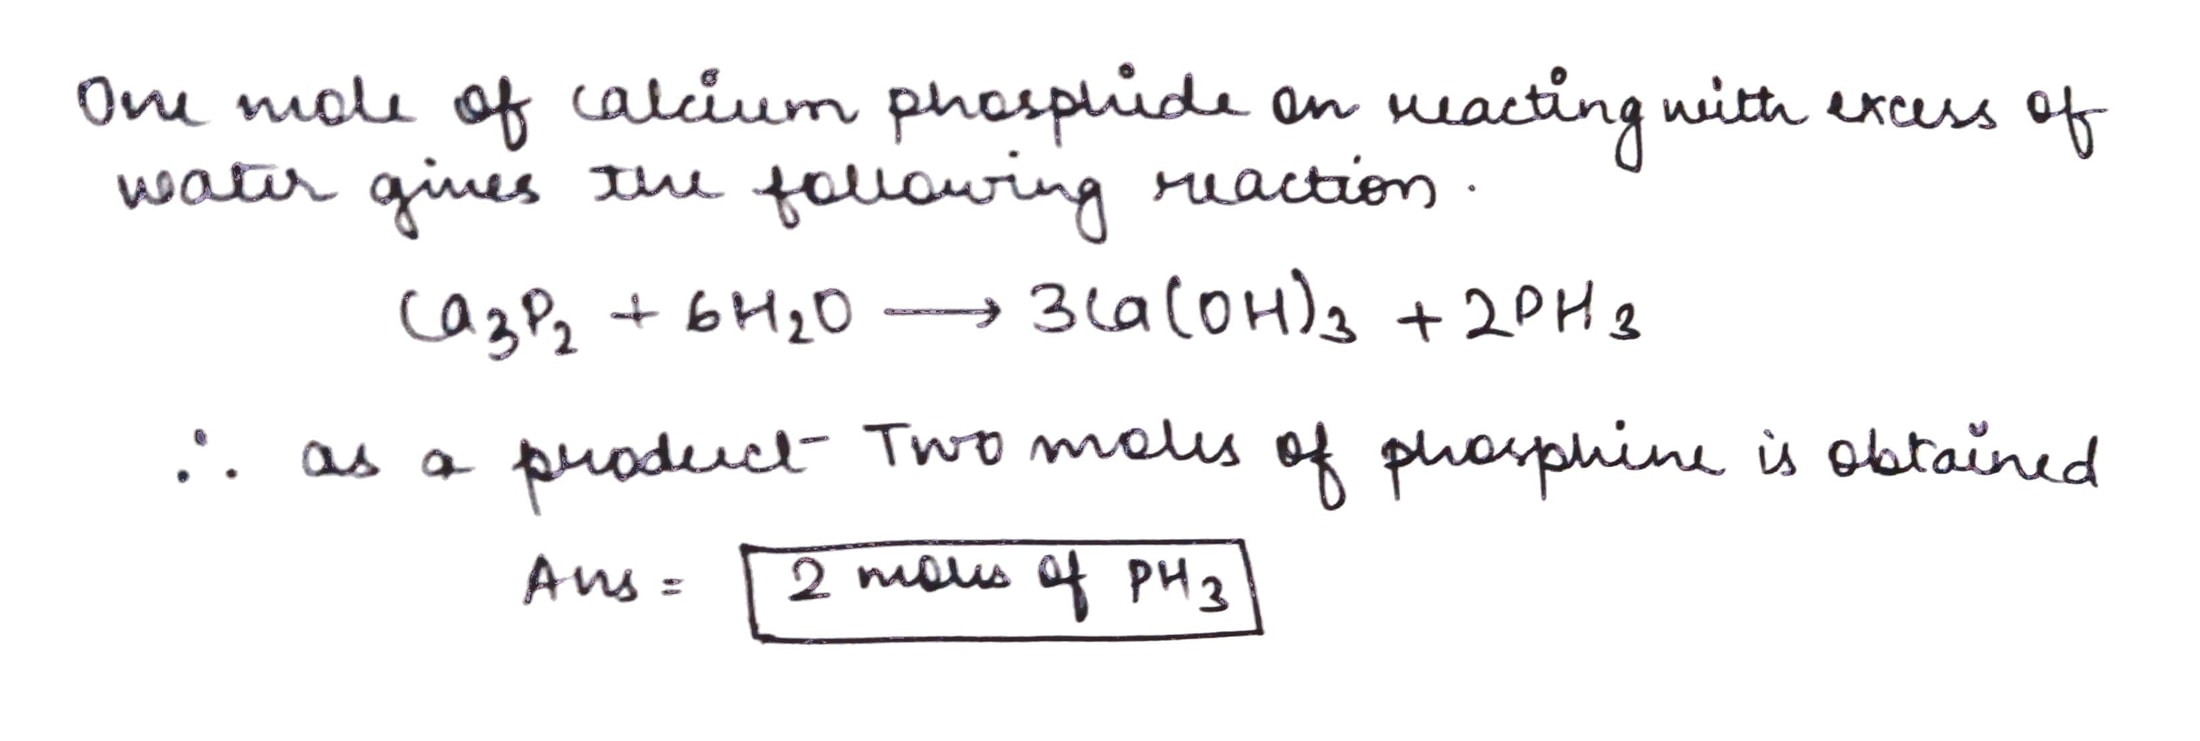 One mole of calcium phosphide on reacting with excess of
water gives the following reaction.
Ca₃P₂ + 6H₂O ⟶ 3Ca(OH)₃ + 2PH₃
∴ as a product Two moles of phosphine is obtained
Ans = 2 moles of PH₃